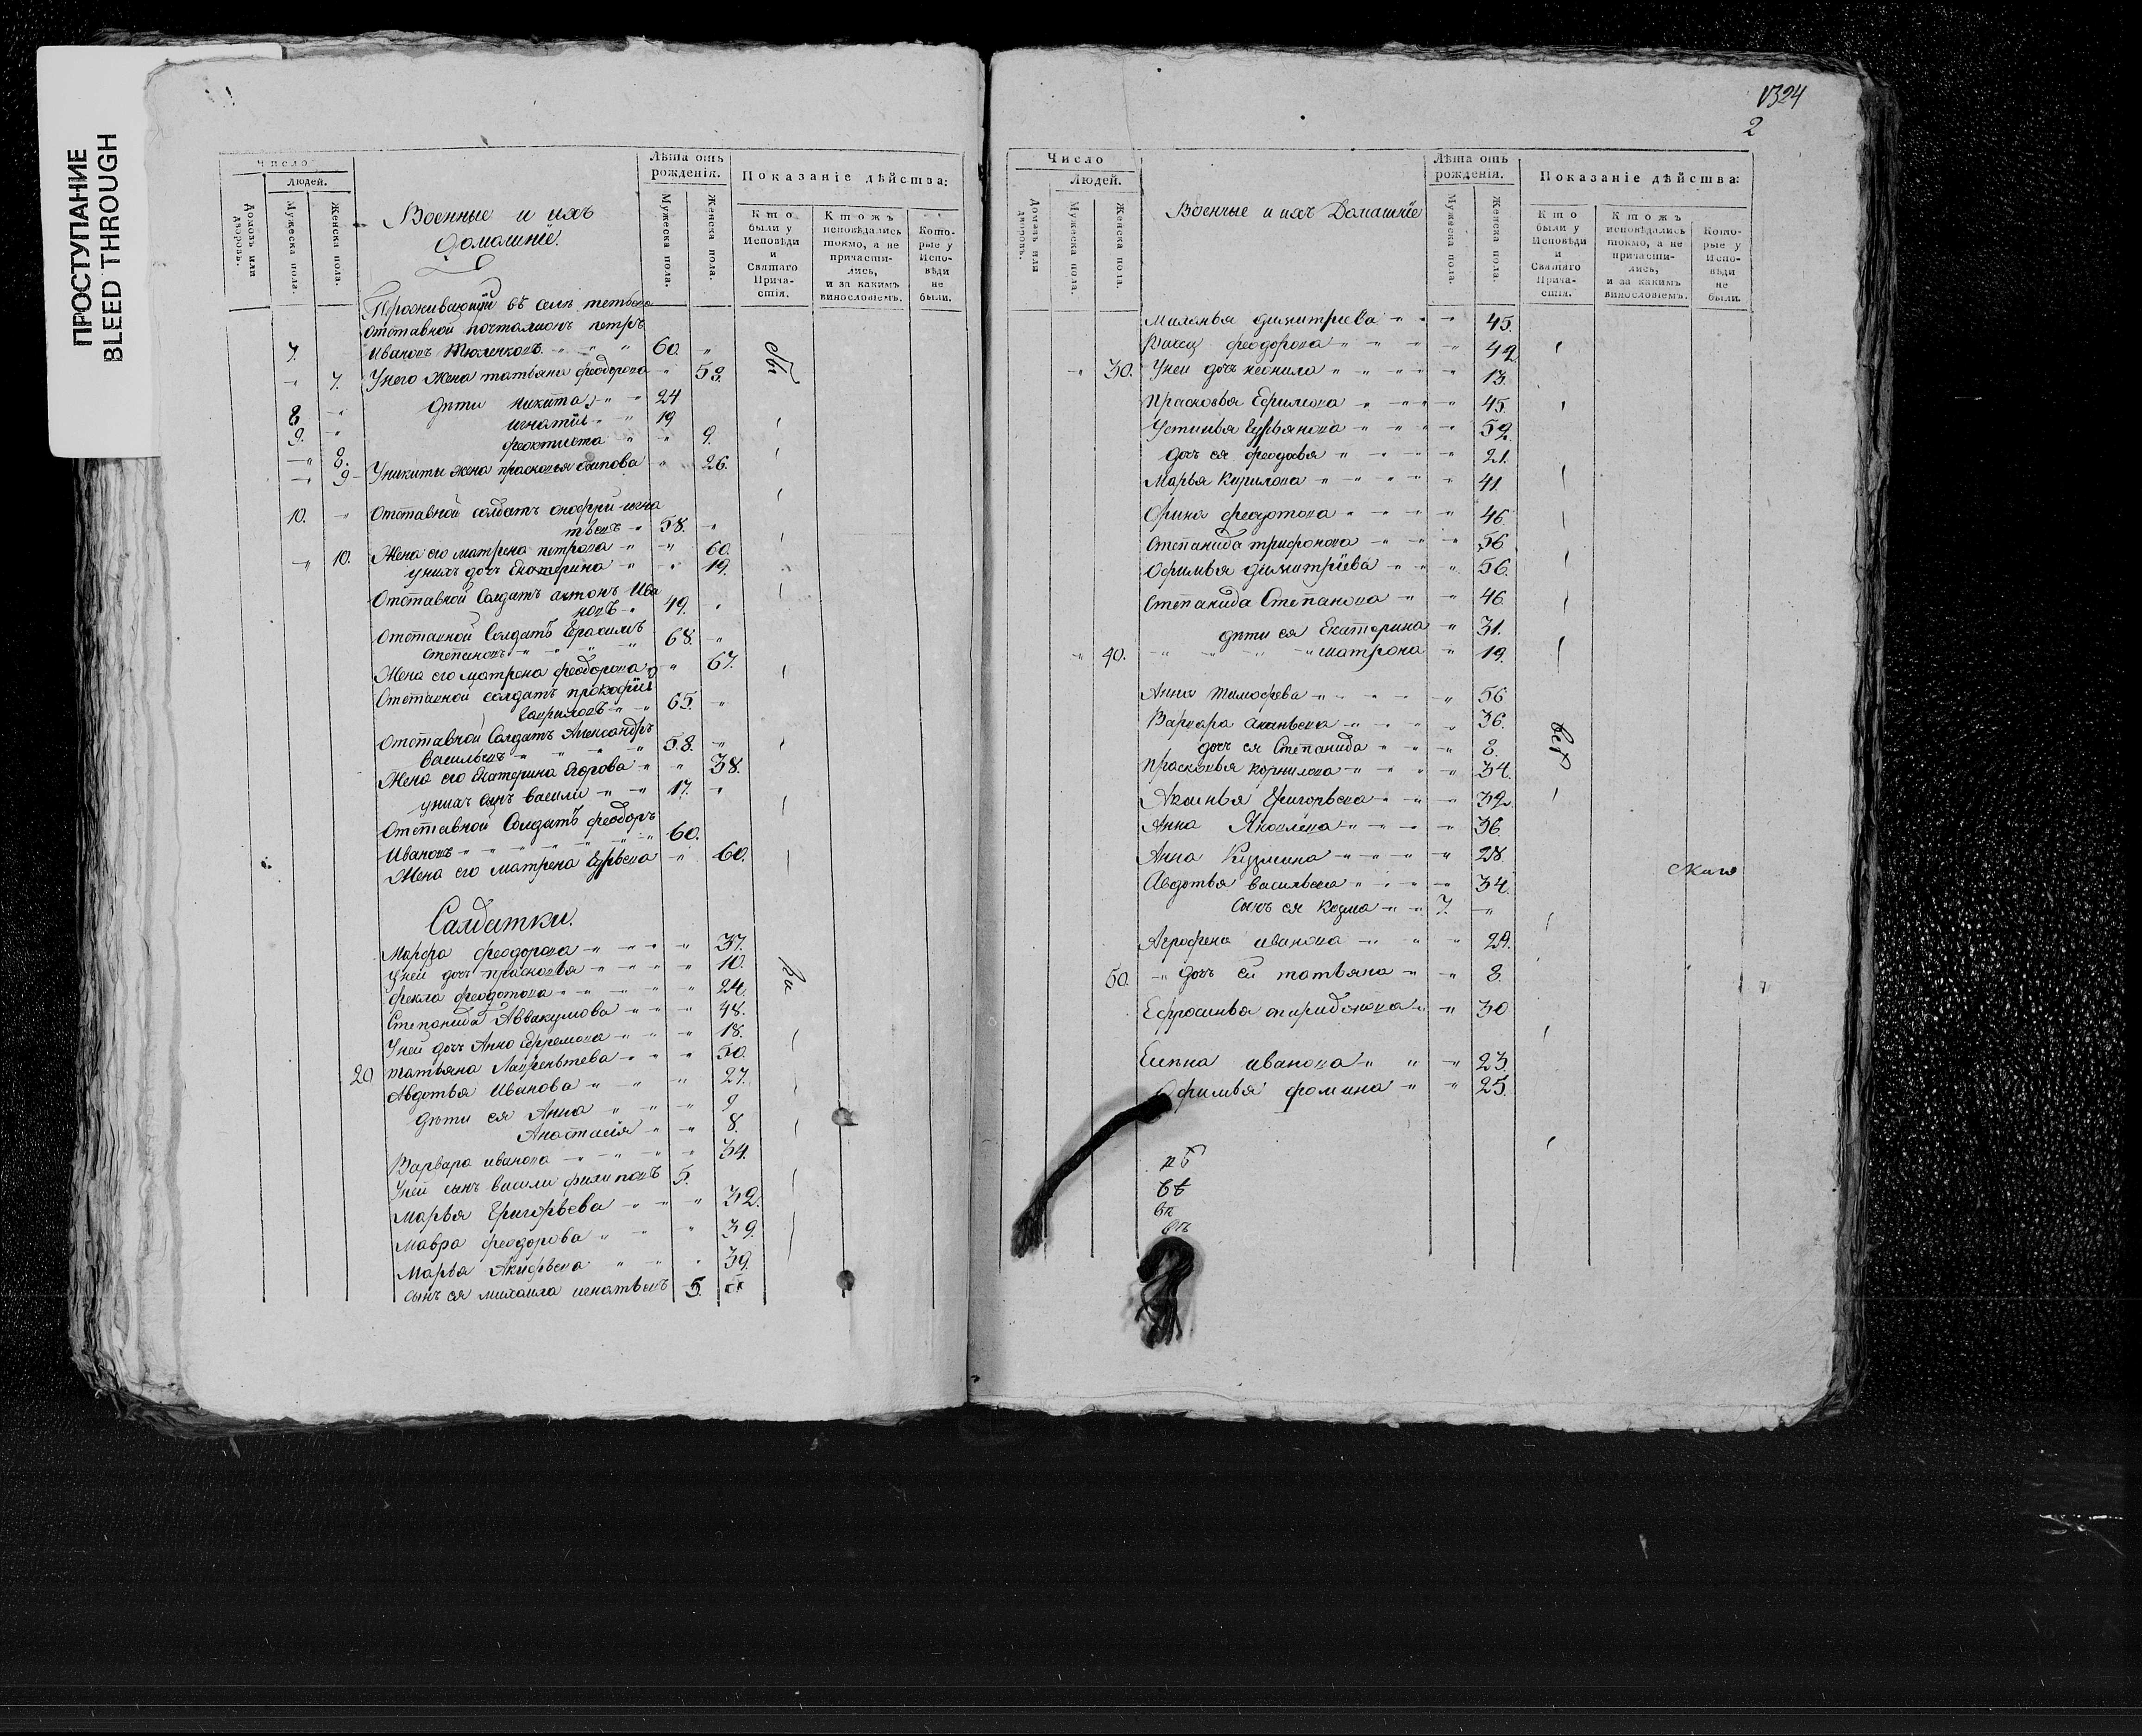 ПРОСТУПАНИЕ
BLEED THROUGH
Число
Людей.
Домовъ или дворовъ.
Мужеска пола.
Женска пола.
Военные и ихъ
домашнїе.
Лѣта отъ
рожденія.
Мужеска пола.
Женска пола.
Показаніе дѣйства:
Кто были у Исповѣди и Святаго Причастія.
Ктожъ исповѣдались токмо, а не причастились, и за какимъ винословіемъ.
Которые у Исповѣди не были.
Проживающїй въ селѣ
отставной почталионъ петръ
7. Ивановъ Тюленковъ " " " 60. "
" 7. Унего жена татьяна феодорова " 53.
8. " дѣти Никита " " 24
9. " игнатїй " " 19
" 8. феоктиста " " 9.
" 9 Уникиты жена прасковья осипова " 26.
10. " Отставной солдатъ онофри игна
тьевъ " 58. "
" 10. Жена его матрена петрова " " 60.
унихъ дочь Екатерина " " 19.
Отставной Солдатъ антонъ Ива
новъ " 49. "
Отставной Солдатъ Герасимъ
Степановъ " " " " 68. "
Жена его матрона феодорова " 67.
Отставной солдатъ прокофїй
Гавриловъ " " 65. "
Отставной Солдатъ Александръ
Васильевъ " " " " 58. "
Жена его Екатерина Егорова " " 38.
унихъ сынъ васили " " 17. "
Отставной Солдатъ феодоръ
Ивановъ " " " " " " 60.
Жена его матрена Гурьева " 60.
Салдатки.
Марфа феодорова " " " " 37.
Уней дочь прасковья " " " " 10.
фекла феодотова " " " " " 24.
Степанида Аввакумова " " " 48.
Уней дочь Анна Ефремова " " " 18.
20 татьяна Лаврентьева " " " 50.
Авдотья Иванова " " " 27.
дѣти ея Анна " " " 9
Анастасїя " " 8.
Варвара иванова " " " " 34.
Уней сынъ васили филиповъ 5.
Марья Григорьева " " " 32.
Мавра феодорова " " " 39.
Марья " " " 39.
сынъ ея михаила игнатьевъ 5.
1324
2
Число
Людей.
Домовъ или дворовъ.
Мужеска пола.
Женска пола.
Военные и ихъ Домашнїе
Лѣта отъ
рожденія.
Мужеска пола.
Женска пола.
Показаніе дѣйства:
Кто были у Исповѣди и Святаго Причастія.
Ктожъ исповѣдались токмо, а не причастились, и за какимъ винословіемъ.
Которые у Исповѣди не были.
Маланья димитрїева " " " 45.
феодорова " " " " 42
" 30. Уней дочь неонила " " " " " 13.
Прасковья Ефимова " " " " 45.
Устинья " " " " 52.
дочь ея феодосья " " " " 21.
Марья Кирилова " " " " " 41.
Орина феодотова " " " " 46.
Степанида трифонова " " " 56
Офимья димитрїева " " " 56.
Степанида Степанова " " 46
дѣти ея Екатерина " 31.
" 40. " " " " матрона " 19.
Анна тимофеева " " " " 56
Варвара ананьева " " " " 36.
дочь ея Степанида " " " 8.
прасковья корнилова " " " " 34.
Аксинья Григорьева " " " 32.
Анна Яковлева " " " " 36.
Анна Кузмина " " " " 28.
Авдотья васильева " " " " 34.
Сынъ ея козма " " 7. "
Агрофена иванова " " " 29.
50. " дочь ея татьяна " " 8.
Ефросинья спиридонова " " 30
Елена иванова " " " 23.
Офимья фомина " " 25.